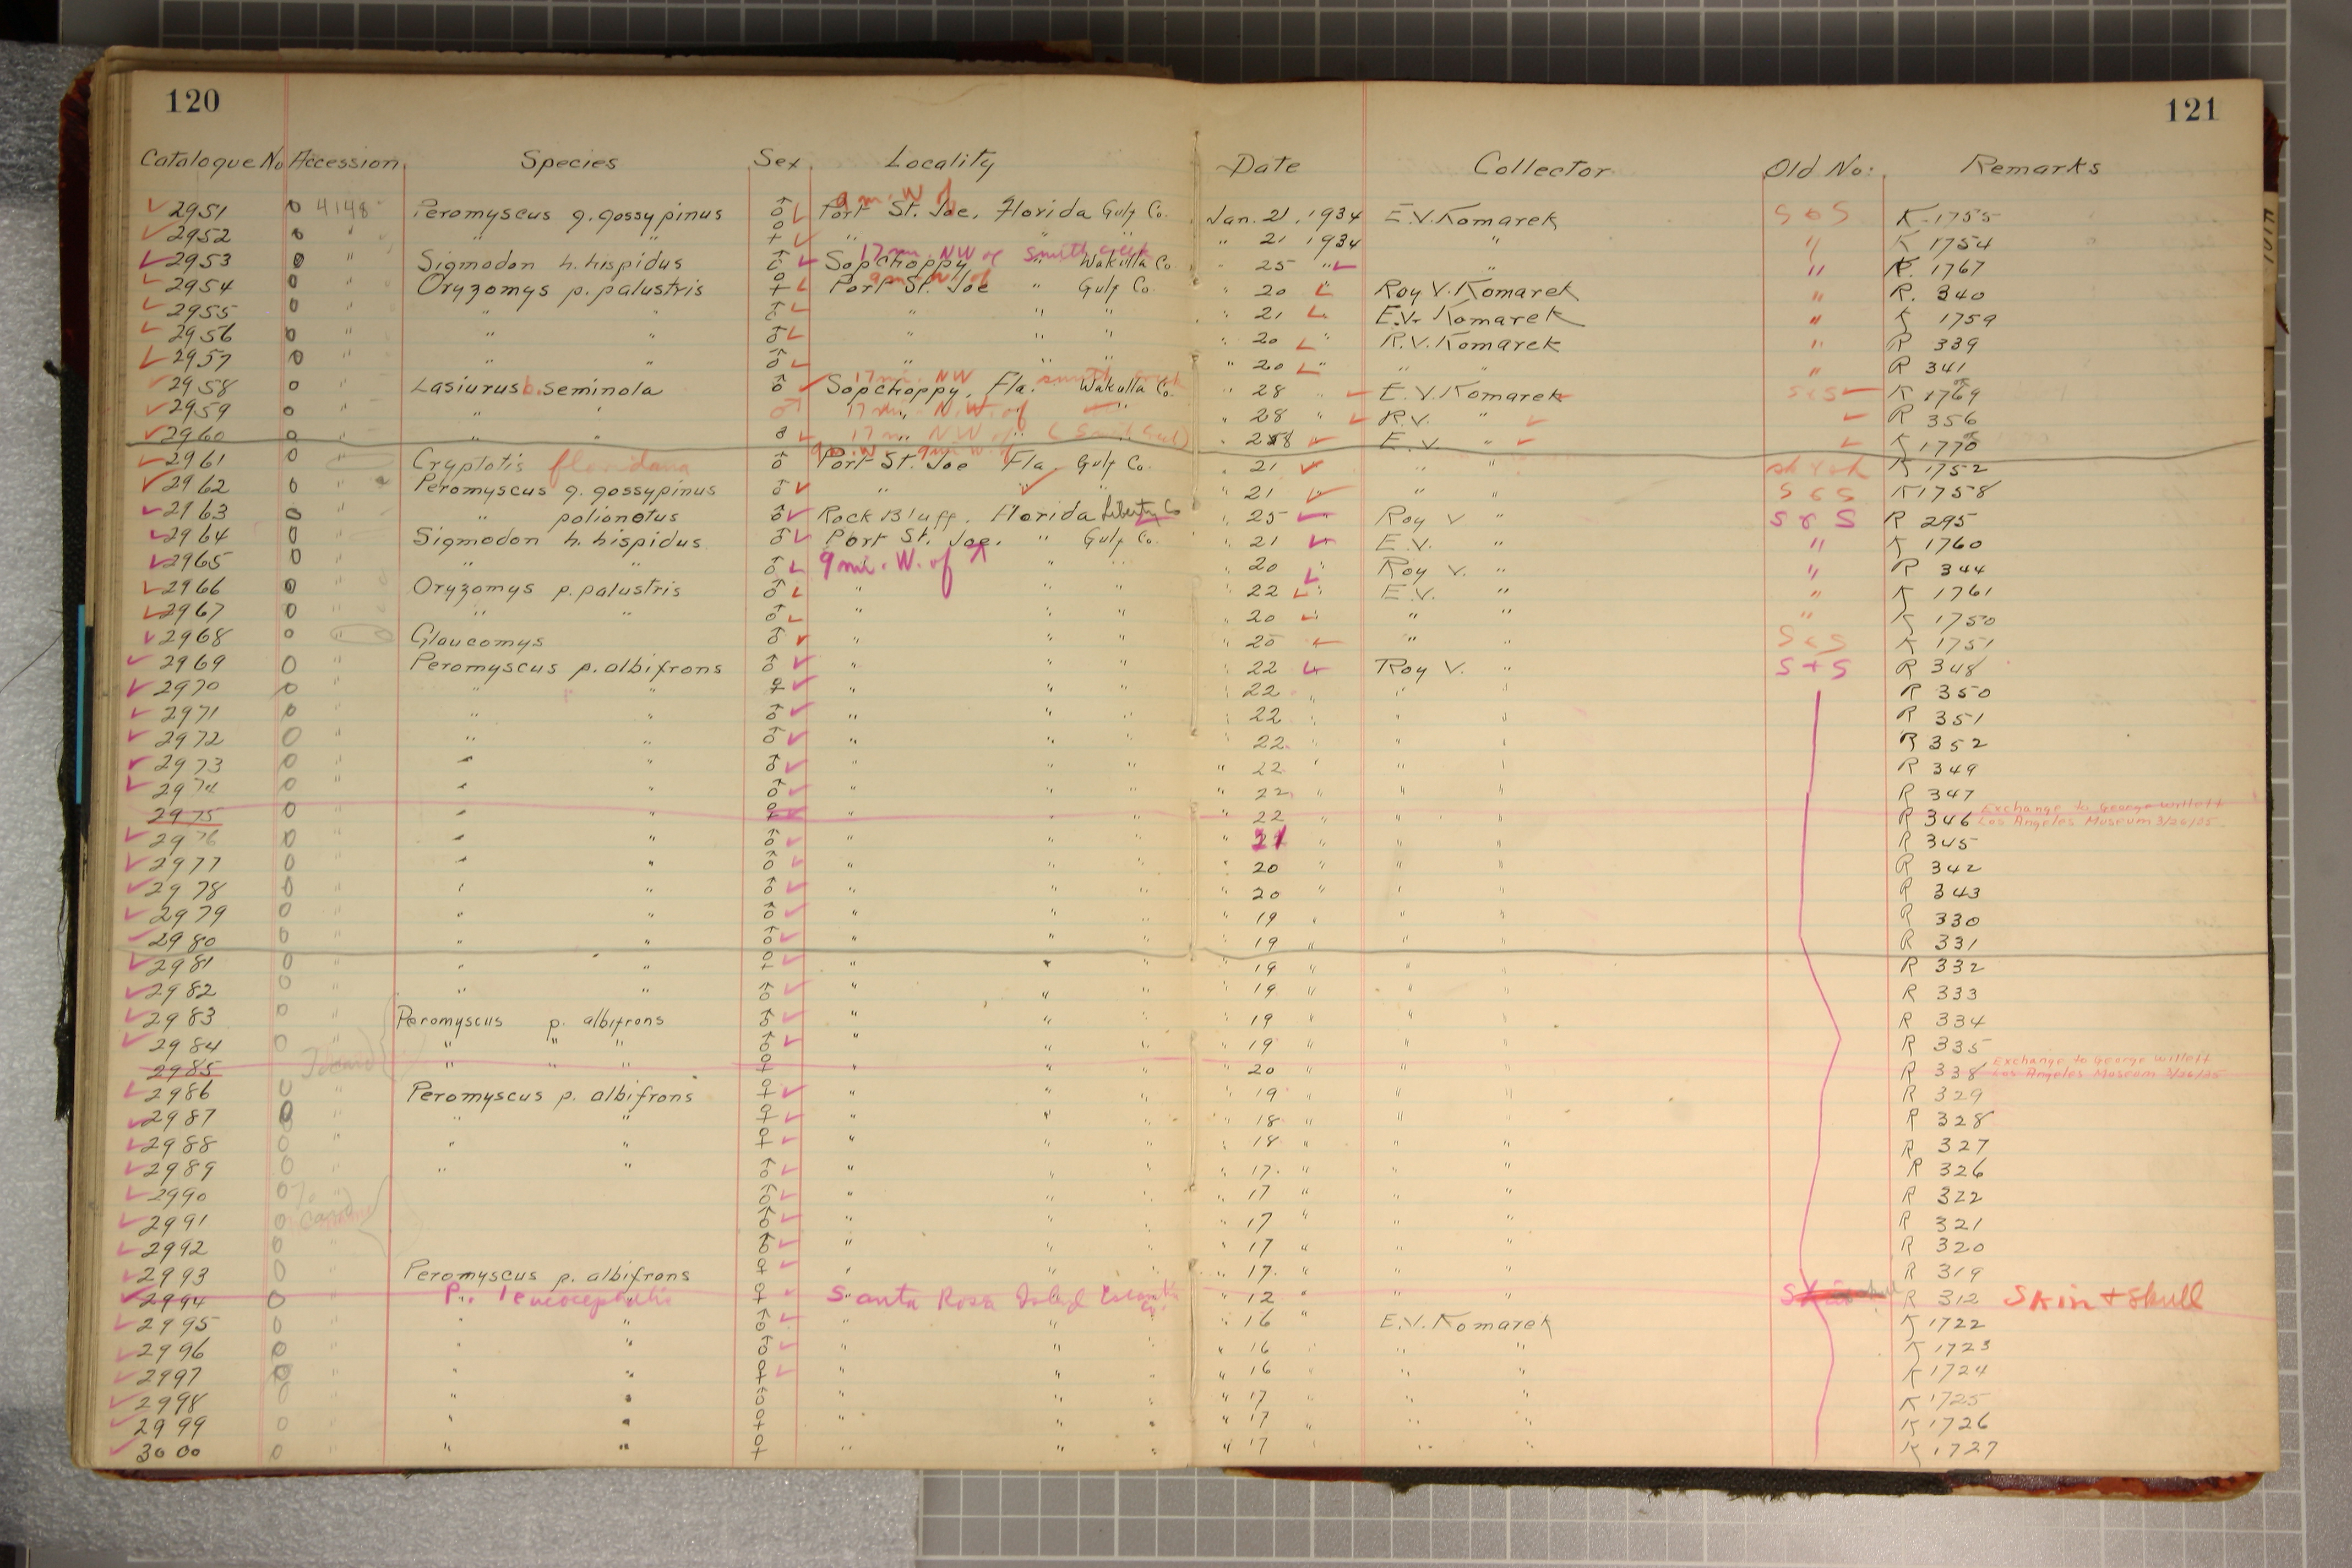 120
121
Catalogue No Accession Species Sex Locality Date Collector Old No: Remarks
2951 0 4148 Peromyscus g. gossypinus ♂ 9 mi. W of Port St. Joe, Florida Gulf Co. Jan. 21, 1934 E.V. Komarek S & S K-1755
2952 0 " " " ♀ " " " " 21 1934 " " K 1754
2953 0 " Sigmodon h. hispidus ♂ 17 mi. NW of Smith Creek Sopchoppy " Wakulla Co. " 25 " " " K. 1767
2954 0 " Oryzomys p. palustris ♀ 9 mi. W of Port St. Joe " Gulf Co. " 20 " Roy V. Komarek " R. 340
2955 0 " " " ♂ " " " " 21 " E.V. Komarek " K 1759
2956 0 " " " ♂ " " " " 20 " R.V. Komarek " R 339
2957 0 " " " ♂ " " " " 20 " " " " R 341
2958 0 " Lasiurus b. seminola ♂ 17 mi. NW Smith Creek Sopchoppy, Fla. Wakulla Co. " 28 E.V. Komarek S & S K 1769
2959 0 " " " ♂ 17 mi. N.W. of " " 28 " R.V. " R 356
2960 0 " " ♂ 17 mi NW of " (Smith Creek) " 28 " E.V. " K 1770
2961 0 " Cryptotis floridana ♂ 9 mi. W. of Port St. Joe Fla Gulf Co. " 21 " " K 1752
2962 0 " Peromyscus g. gossypinus ♂ " " " " 21 " " " S & S K 1758
2963 0 " " polionotus ♂ Rock Bluff. Florida Liberty Co " 25 " Roy V " S & S R 295
2964 0 " Sigmodon h. hispidus ♂ Port St. Joe. " Gulf Co. " 21 " E.V. " " K 1760
2965 0 " " " ♂ 9 mi. W. of " " " 20 " Roy V. " " R 344
2966 0 " Oryzomys p. palustris ♂ " " " " 22 " E.V. " " K 1761
2967 0 " " " ♂ " " " " 20 " " " " K 1750
2968 0 " Glaucomys ♂ " " " " 20 " " S & S K 1751
2969 0 " Peromyscus p. albifrons ♂ " " " " 22 Roy V. " S + S R 348
2970 0 " " " ♀ " " " " 22 " " " R 350
2971 0 " " " ♂ " " " " 22 " " " R 351
2972 0 " " " ♂ " " " " 22 " " " R 352
2973 0 " " " ♂ " " " " 22 " " " R 349
2974 0 " " " ♂ " " " " 22 " " " R 347
2975 0 " " ♀ " " " " 22 " " " R 346 Exchange to George Willett
Los Angeles Museum
2976 0 " " " ♂ " " " " 21 " " " R 345
2977 0 " " " ♂ " " " " 20 " " " R 342
2978 0 " " " ♂ " " " " 20 " " " R 343
2979 0 " " " ♂ " " " " 19 " " " R 330
2980 0 " " " ♂ " " " " 19 " " " R 331
2981 0 " " " ♀ " " " " 19 " " " R 332
2982 0 " " " ♂ " " " " 19 " " " R 333
2983 0 " Peromyscus p. albifrons ♂ " " " " 19 " " " R 334
2984 0 " " " " ♂ " " " " 19 " " " R 335
2985 " " " ♀ " " " " 20 " " " R 338 Exchange to George Willett
Los Angeles Museum 3/26/35
2986 0 " Peromyscus p. albifrons ♀ " " " " 19 " " " R 329
2987 0 " " " ♀ " " " " 18 " " " R 328
2988 0 " " " ♀ " " " " 18 " " " R 327
2989 0 " " " ♂ " " " " 17. " " " R 326
2990 0 " ♂ " " " " 17 " " " R 322
2991 0 card ♂ " " " " 17 " " " R 321
2992 0 " ♂ " " " " 17 " " " R 320
2993 0 " Peromyscus p. albifrons ♀ " " " " 17. " " " R 319
2994 0 " P. leucocephalus ♀ Santa Rosa Island " 12 " " " R 312 Skin + Skull
2995 0 " " " ♂ " " " " 16 " E.V. Komarek K 1722
2996 0 " " " ♂ " " " " 16 " " " K 1723
2997 0 " " " ♀ " " " " 16 " " " K 1724
2998 0 " " " ♂ " " " " 17 " " " K 1725
2999 0 " " " ♀ " " " " 17 " " " K 1726
3000 0 " " " ♀ " " " " 17 " " " K 1727